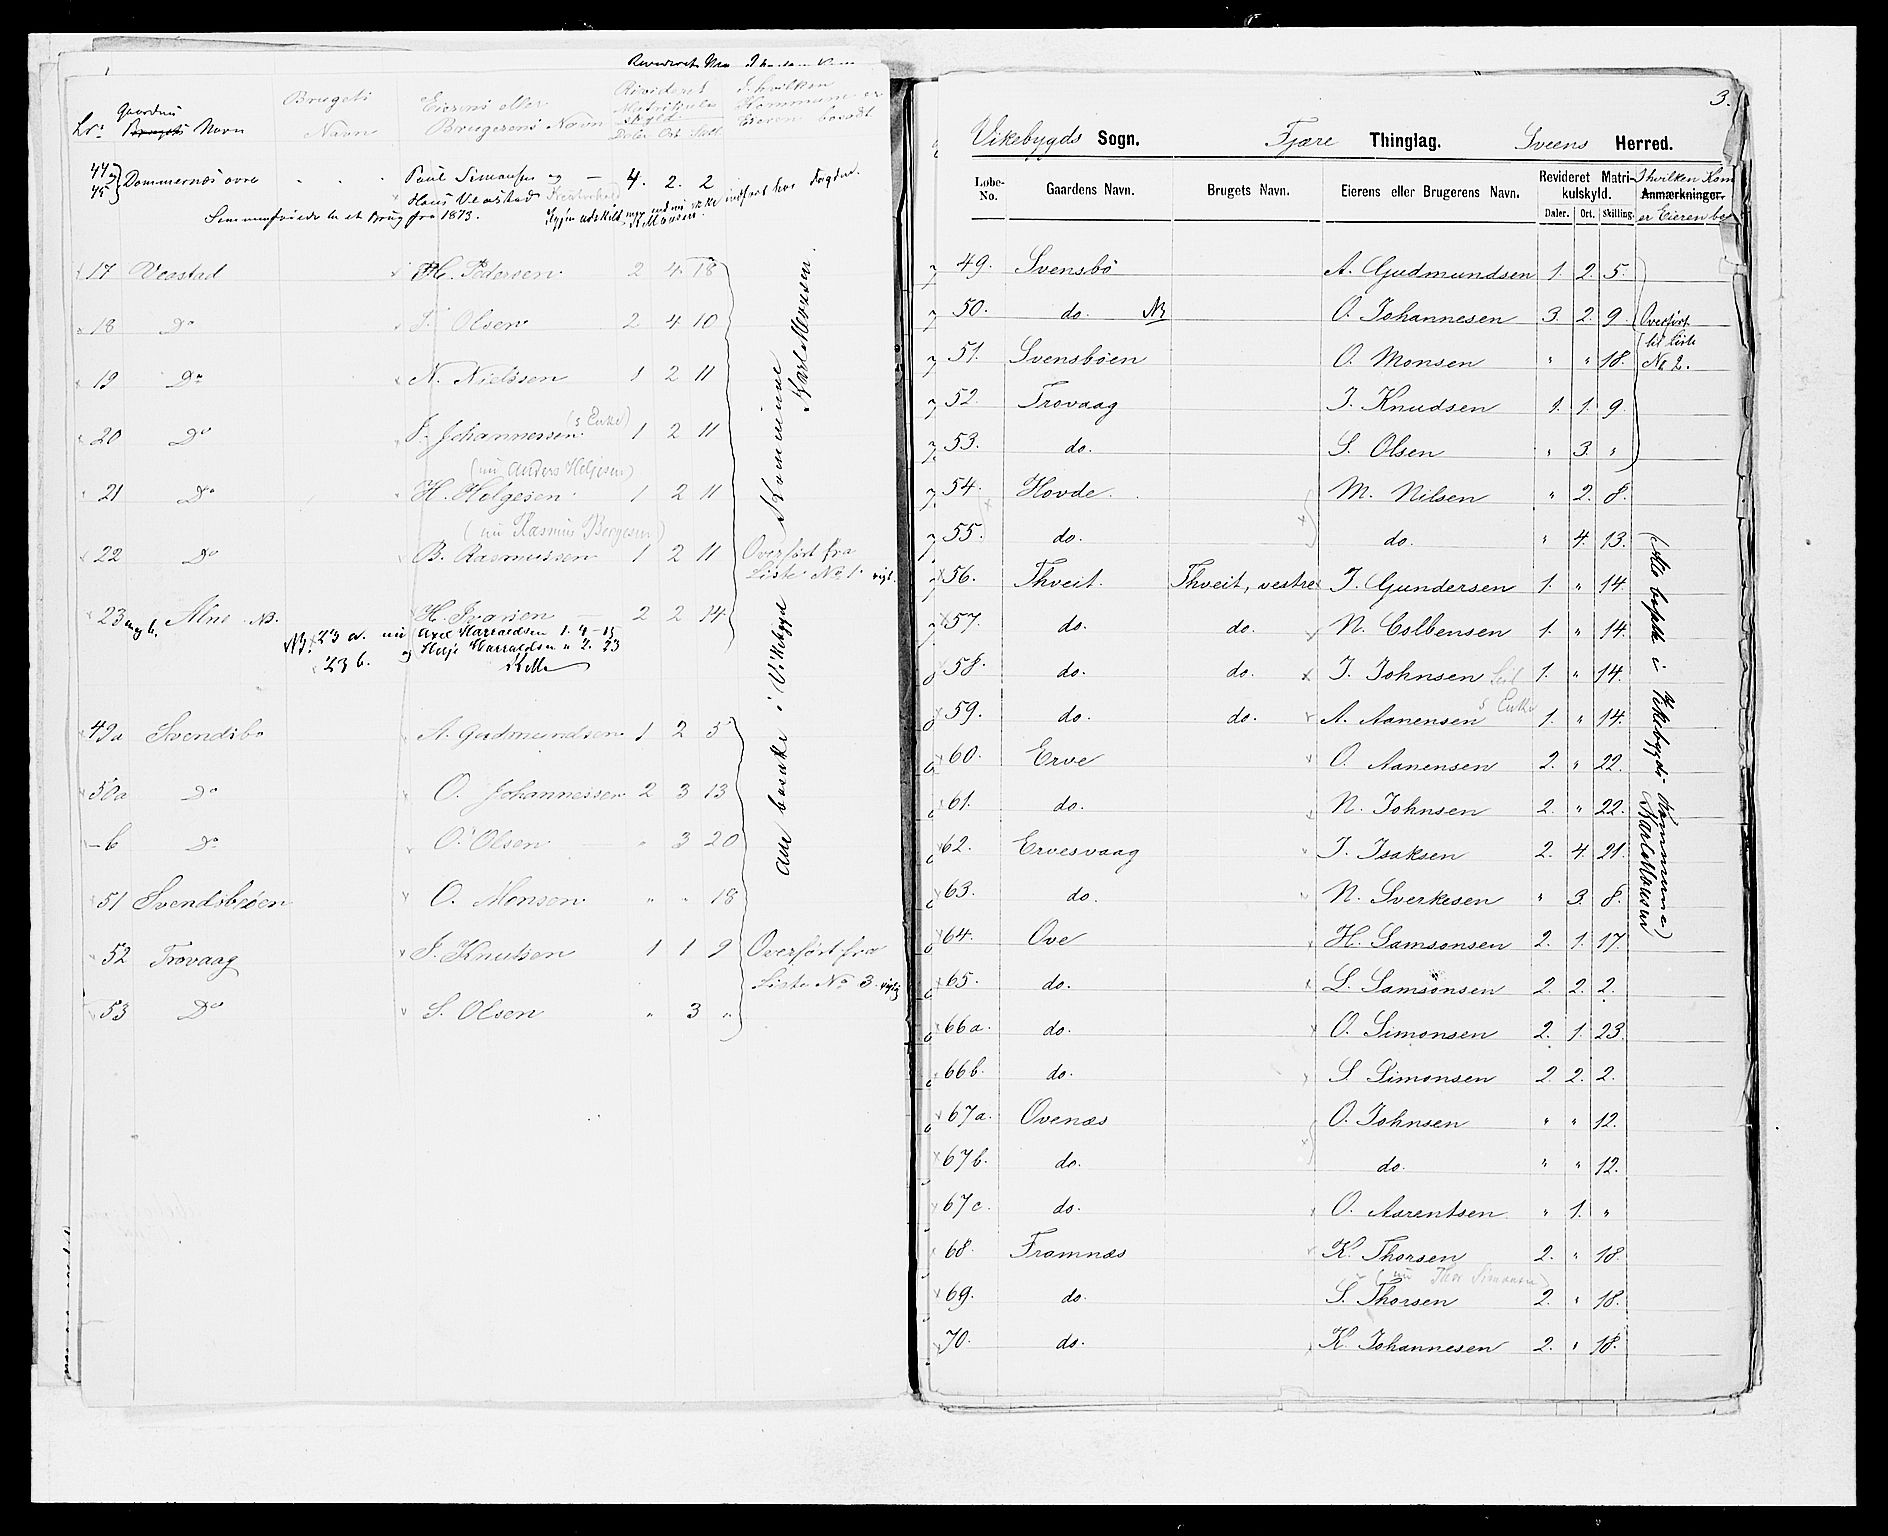 Lr: Gaardns Brugets Navn Brugets Navn Eierens eller Brugerens Navn Revideret Matrikulskyld Daler Ort Skill. I hvilken Kommune er Eieren bosadt
44 og 45 Dommersnæs øvre Paul Simonsen og 4. 2. 2
Hans Veastad
Sammenføiede til et Brug fra 1873.
17 Veastad H. Pedersen 2 4 18
18 Do T. Olsen 2 4 10
19 Do N. Nielssen 1 2 11
20 Do J. Johannessen (s Enke) 1 2 11
(nu Anders Helgesen)
21 Do H. Helgesen 1 2 11
(nu Rasmus Bergesen)
22 Do B. Rasmussen 1 2 11 Overført fra
Liste No 1.
23 Alne NB. H. Ivarsen 2 2 14
NB. 23 a. nu Axel Harraldsen 1. 4 - 15
23 b. og Helje Harraldsen " 2. 23
49a Svendsbø A. Gudmundsen 1 2 5
50a Do O. Johannessen 2 3 13
- b Do O. Olsen " 3 20
51 Svendsbøen O. Monsen " " 18
52 Trovaag J. Knutsen 1 1 9 Overført fra
Liste No 3.
53 Do S. Olsen " 3 "
Alle bosatte i Vikebygd Kommune
Karl Monsen
3.
Vikebygds Sogn. Fjære Thinglag. Sveens Herred.
Løbe-No. Gaardens Navn. Brugets Navn. Eierens eller Brugerens Navn. Revideret Matrikulskyld. Daler. Ort. Skilling. I hvilken Kom Anmærkninger. er Eieren bo
49. Svensbö A. Gudmundsen 1. 2. 5.
50. do. NB O. Johannesen 3. 2. 9. Overført
til Liste
51. Svensböen O. Monsen " " 18. No 2.
52. Trovaag J. Knudsen 1. 1. 9.
53. do. S. Olsen " 3. "
54. Hovde. M. Nilsen " 2. 8.
55. do. do. " 4. 13.
56. Thveit. Thveit, vestre J. Gundersen 1. " 14.
57. do. do. N. Colbensen 1. " 14.
58. do. do. J. Johnsen 1. " 14.
59. do. do. A. Aanensen s Enke 1. " 14.
60. Erve O. Aanensen 2. " 22.
61. do. N. Johnsen 2. " 22.
62. Ervesvaag J. Isaksen 2. 4. 21.
63. do. N. Sverkesen " 3. 8.
64. Ove H. Samsonsen 2. 1. 17.
65. do. L. Samsonsen 2. 2. 2.
66a. do. O. Simonsen 2. 1. 23.
66b. do. S Simonsen 2. 2. 2.
67a. Ovenæs O. Johnsen " " 12.
67b. do. do. " " 12.
67c. do. O. Aarentsen. " 1. "
68. Framnæs K. Thorsen 2. " 18.
(nu Thor Simonsen)
69. do. S. Thorsen 2. " 18.
70. do. K. Johannesen 2. " 18.
(Alle bosatte i Vikebygds Kommune)
Karl Monsen